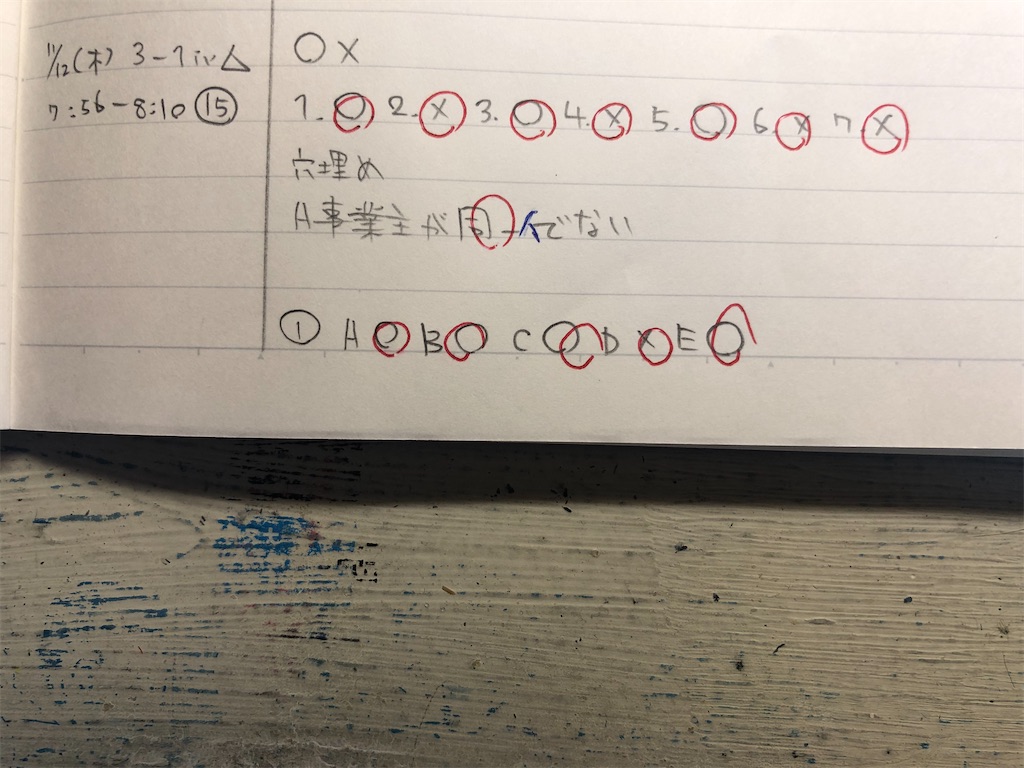 11/12(木) 3-1 iv △
7:56-8:10 ⑮
○×
1.○ 2.× 3.○ 4.× 5.○ 6.× 7×
穴埋め
A事業主が同一人でない
① A○ B○ C○ D× E○